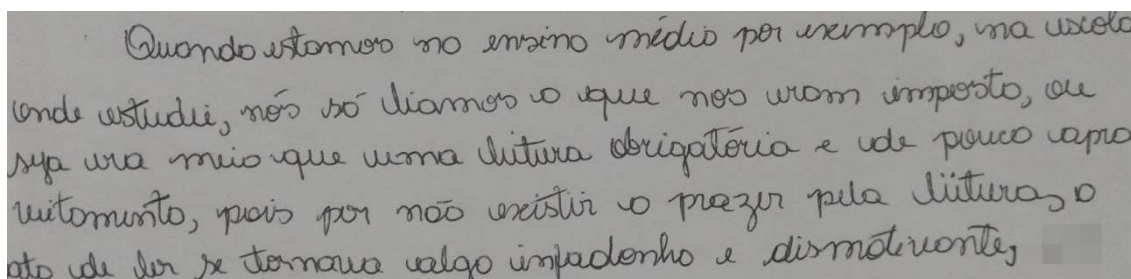 Quando estamos no ensino médio por exemplo, na escola
onde estudei, nós só liamos o que nos eram imposto, ou
seja era meio que uma leitura obrigatória e de pouco apro
veitamento, pois por não existir o prazer pela leitura, o
ato de ler se tornava algo enfadonho e dismotivante,